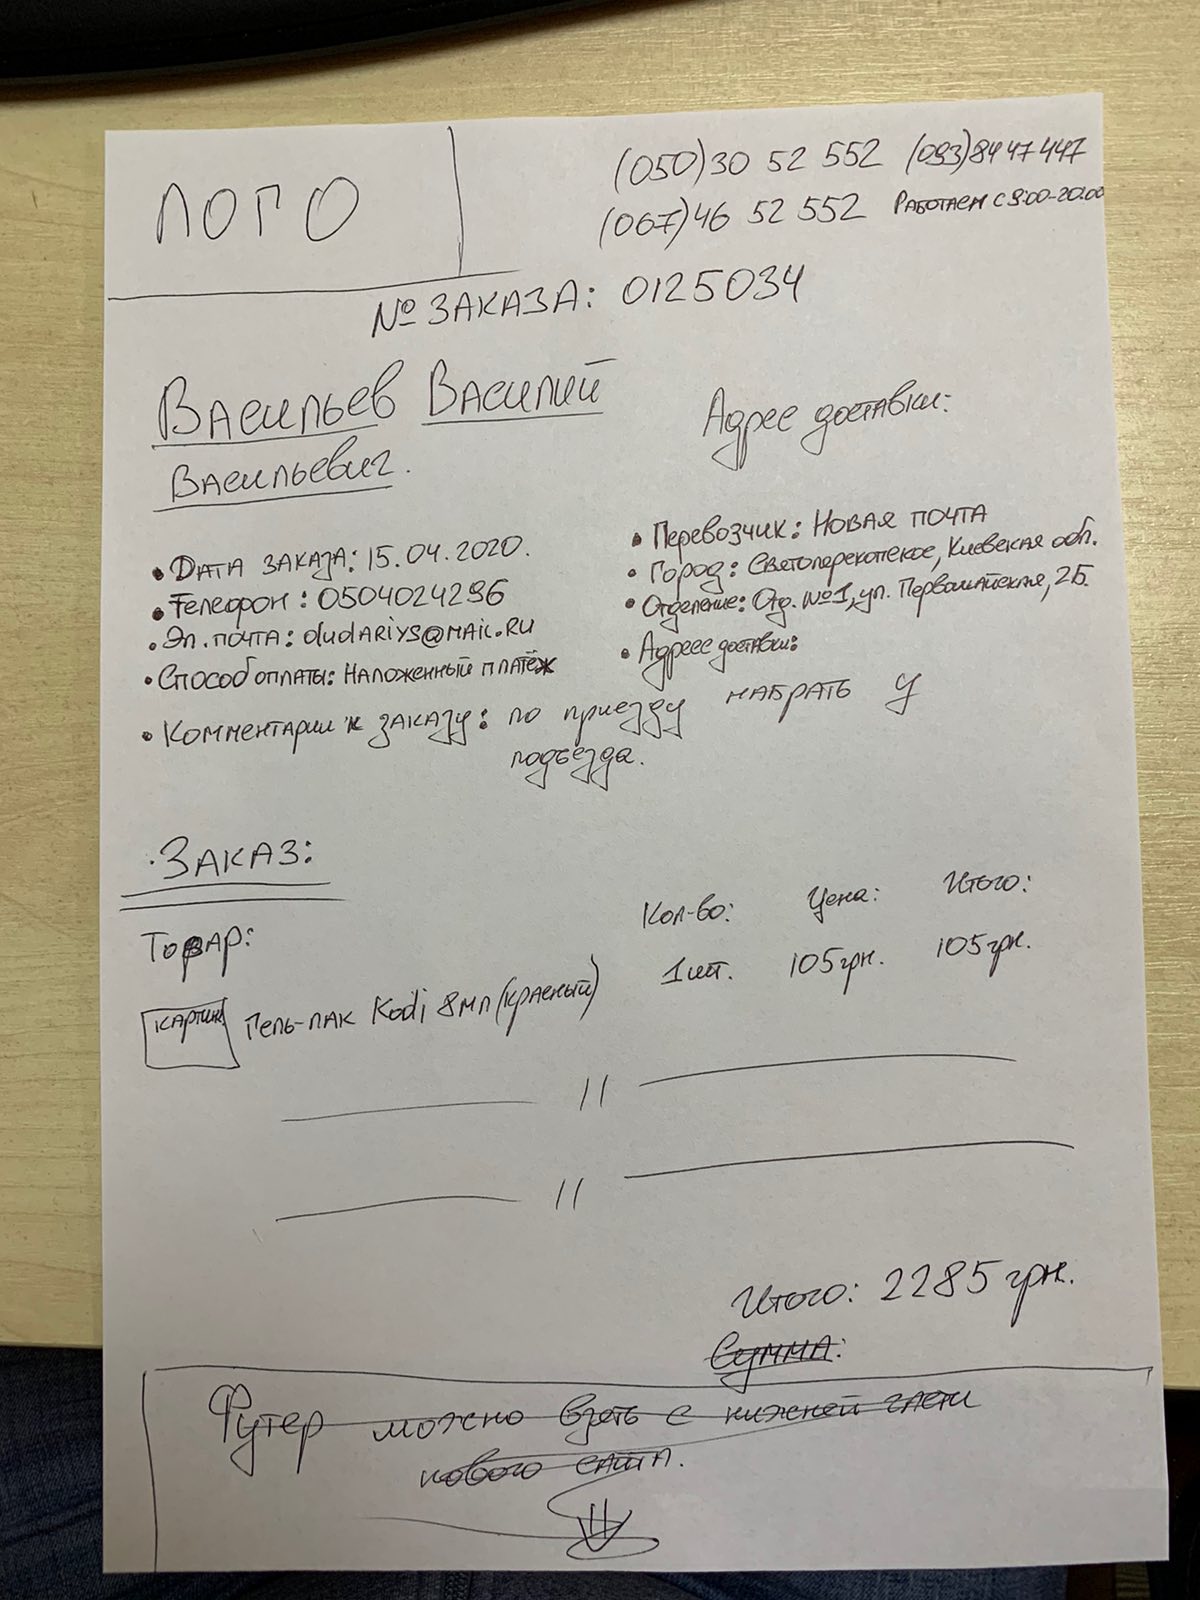 ЛОГО
(050)30 52 552 (093)8447447
(067)46 52 552 Работаем с 9:00-20:00
№ ЗАКАЗА: 0125034
Васильев Василий
Васильевич.
Адрес доставки:
• Дата заказа: 15.04.2020.
• Телефон: 0504024296
• Эл. почта: dudariys@mail.ru
• Способ оплаты: Наложенный платёж
• Перевозчик: Новая почта
• Город: Святоперекопское, Киевская обл.
• Отделение: Отд. №1, ул. Первомайская, 2Б.
• Адресс доставки:
• Комментарии к заказу: по приезду набрать у
подъезда.
· Заказ:
Товар: Кол-во: Цена: Итого:
картин Гель-лак Kodi 8мл (красный) 1шт. 105грн. 105грн.
//
//
Итого: 2285 грн.
Сумма:
Футер можно взять с нижней части
нового сайта.